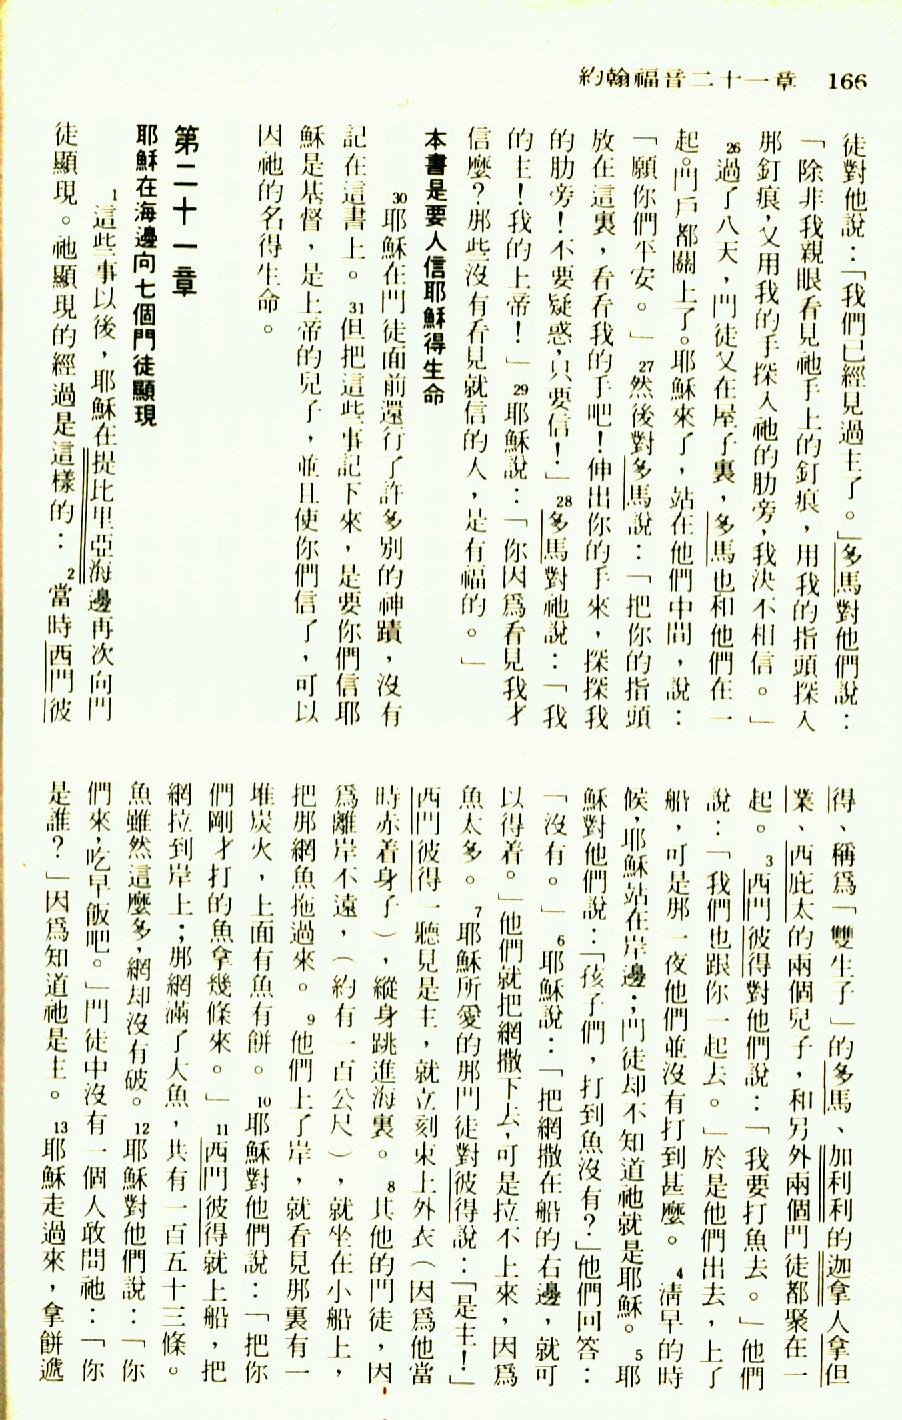 166 約翰福音二十一章
徒對他說：「我們已經見過主了。」多馬對他們說：
「除非我親眼看見祂手上的釘痕，用我的指頭探入
那釘痕，又用我的手探入祂的肋旁，我決不相信。」
26過了八天，門徒又在屋子裏，多馬也和他們在一
起。門戶都關上了。耶穌來了，站在他們中間，說：
「願你們平安。」27然後對多馬說：「把你的指頭
放在這裏，看看我的手吧！伸出你的手來，探探我
的肋旁！不要疑惑，只要信！」28多馬對祂說：「我
的主！我的上帝！」29耶穌說：「你因爲看見我才
信麼？那些沒有看見就信的人，是有福的。」
本書是要人信耶穌得生命
30耶穌在門徒面前還行了許多別的神蹟，沒有
記在這書上。31但把這些事記下來，是要你們信耶
穌是基督，是上帝的兒子，並且使你們信了，可以
因祂的名得生命。
第二十一章
耶穌在海邊向七個門徒顯現
1這些事以後，耶穌在提比里亞海邊再次向門
徒顯現。祂顯現的經過是這樣的：2當時西門彼
得、稱爲「雙生子」的多馬、加利利的迦拿人拿但
業、西庇太的兩個兒子，和另外兩個門徒都聚在一
起。3西門彼得對他們說：「我要打魚去。」他們
說：「我們也跟你一起去。」於是他們出去，上了
船，可是那一夜他們並沒有打到甚麼。4清早的時
候，耶穌站在岸邊；門徒却不知道祂就是耶穌。5耶
穌對他們說：「孩子們，打到魚沒有？」他們回答：
「沒有。」6耶穌說：「把網撒在船的右邊，就可
以得着。」他們就把網撒下去，可是拉不上來，因爲
魚太多。7耶穌所愛的那門徒對彼得說：「是主！」
西門彼得一聽見是主，就立刻束上外衣（因爲他當
時赤着身子），縱身跳進海裏。8其他的門徒，因
爲離岸不遠，（約有一百公尺），就坐在小船上，
把那網魚拖過來。9他們上了岸，就看見那裏有一
堆炭火，上面有魚有餅。10耶穌對他們說：「把你
們剛才打的魚拿幾條來。」11西門彼得就上船，把
網拉到岸上；那網滿了大魚，共有一百五十三條。
魚雖然這麼多，網却沒有破。12耶穌對他們說：「你
們來，吃早飯吧。」門徒中沒有一個人敢問祂：「你
是誰？」因爲知道祂是主。13耶穌走過來，拿餅遞